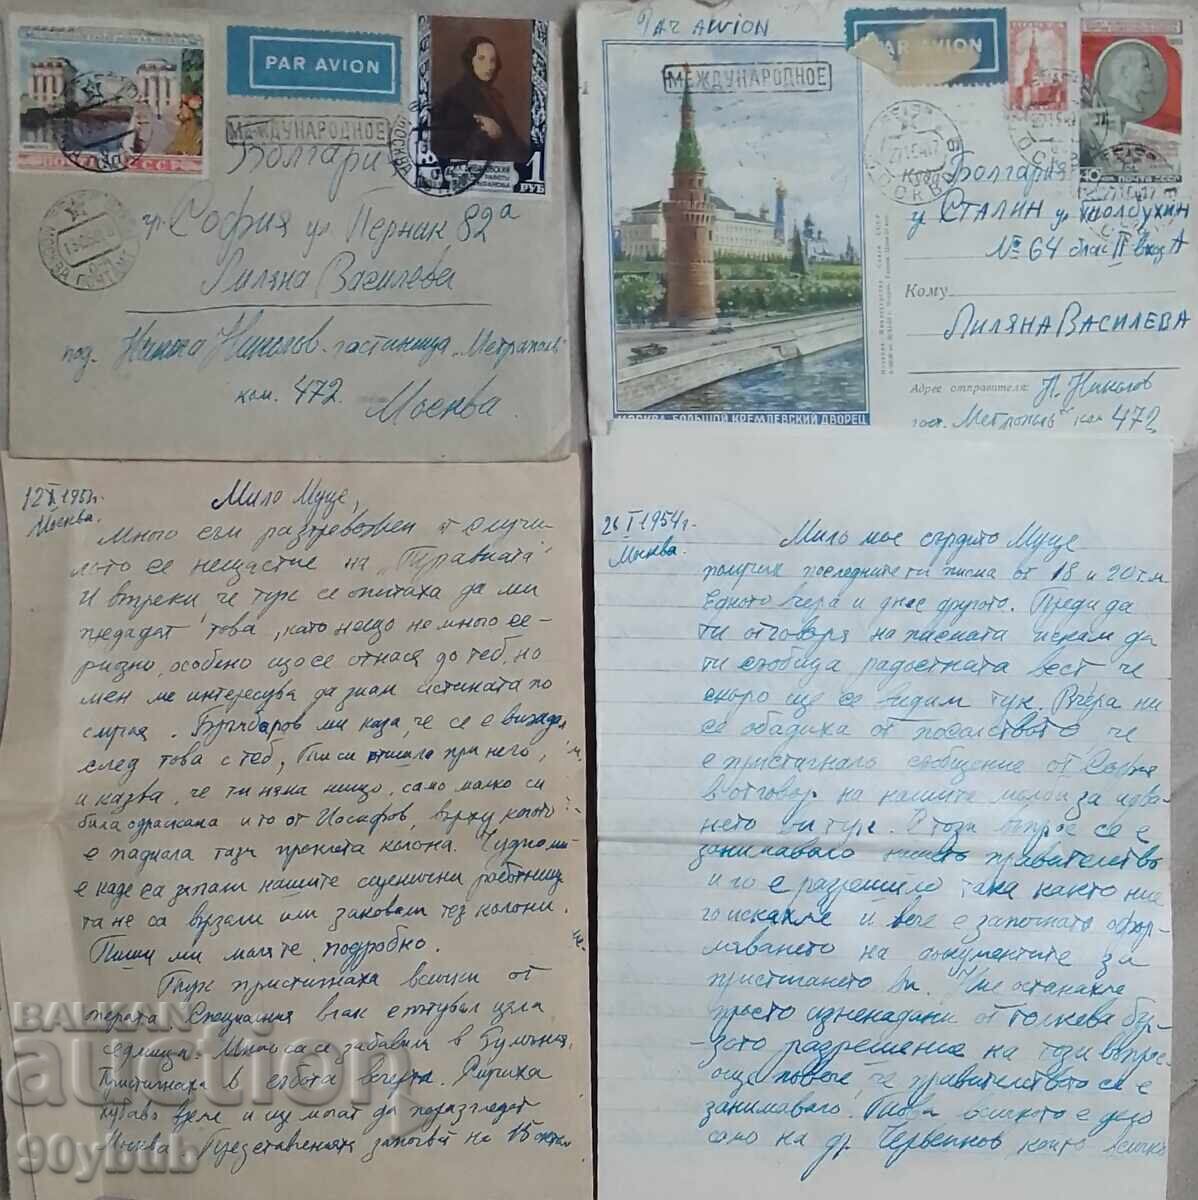 PAR AVION
МЕЖДУНАРОДНОЕ
ПОЧТА СССР
1 РУБ
Болгари
гр. София ул Перник 82а
Лиляна Василева
под. Николов гостиница „Метрополь"
ком. 472
Москва.
PAR AVION
PAR AVION
МЕЖДУНАРОДНОЕ
ПОЧТА СССР
Болгария
г. Сталин ул. Толбухин
№ 64 блок II вход А
Кому
Лиляна Василева
Адрес отправителя: Н. Николов
гост. „Метрополь" ком 472
МОСКВА. БОЛЬШОЙ КРЕМЛЕВСКИЙ ДВОРЕЦ
Москва.
Мило Муце,
Много съм разтревожен от случи-
лото се нещастие на
И въпреки, че тук се опитаха да ми
предадат това, като нещо не много се-
риозно, особено що се отнася до теб, но
мен ме интересува да знам истината по
случая. Бърлбаров ми каза, че се е виждал
след това с теб,
и казва, че ти няма нищо, само малко си
била одраскана и то от Йосифов, върху когото
е паднала тази проклета колона. Чудно ми
е каде са гледали нашите сценични работници
та не са вързали или заковали тез колони.
Пиши ми моля те, подробно.
Тук пристигнаха всички от
операта. Специалния влак е пътувал цяла
седмица. Много са се забавили в Румъния.
Пристигнаха в събота вечерта.
хубаво време и ще могат да поразгледат
Москва. Представленията започват на 15 октом
26 I 1954 г.
Москва.
Мило мое сърдито Муце
получих последните ти писма от 18 и 20 т.м.
Едното вчера и днес другото. Преди да
ти отговоря на писмата искам да
ти съобщя радостната вест че
скоро ще се видим тук. Вчера ни
се обадиха от посолството че
е пристигнало съобщение от София
в отговор на нашите молби за идва-
нето ви тук. В този въпрос се е
занимавало нашето правителство
и го е разрешило така както ние
го искахме и вече е започнато офор-
мяването на документите за
пристигането ви. Ние останахме
просто изненадани от толкова бър-
зото разрешение на този въпрос
още повече че правителството се е
занимавало. Това всичкото е дело
само на др. Червенков който всичко
BALKAN
auction
90ybdb